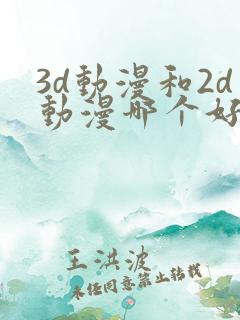 3d動漫和2d
動漫哪个好
王洪波
未经同意禁止转载